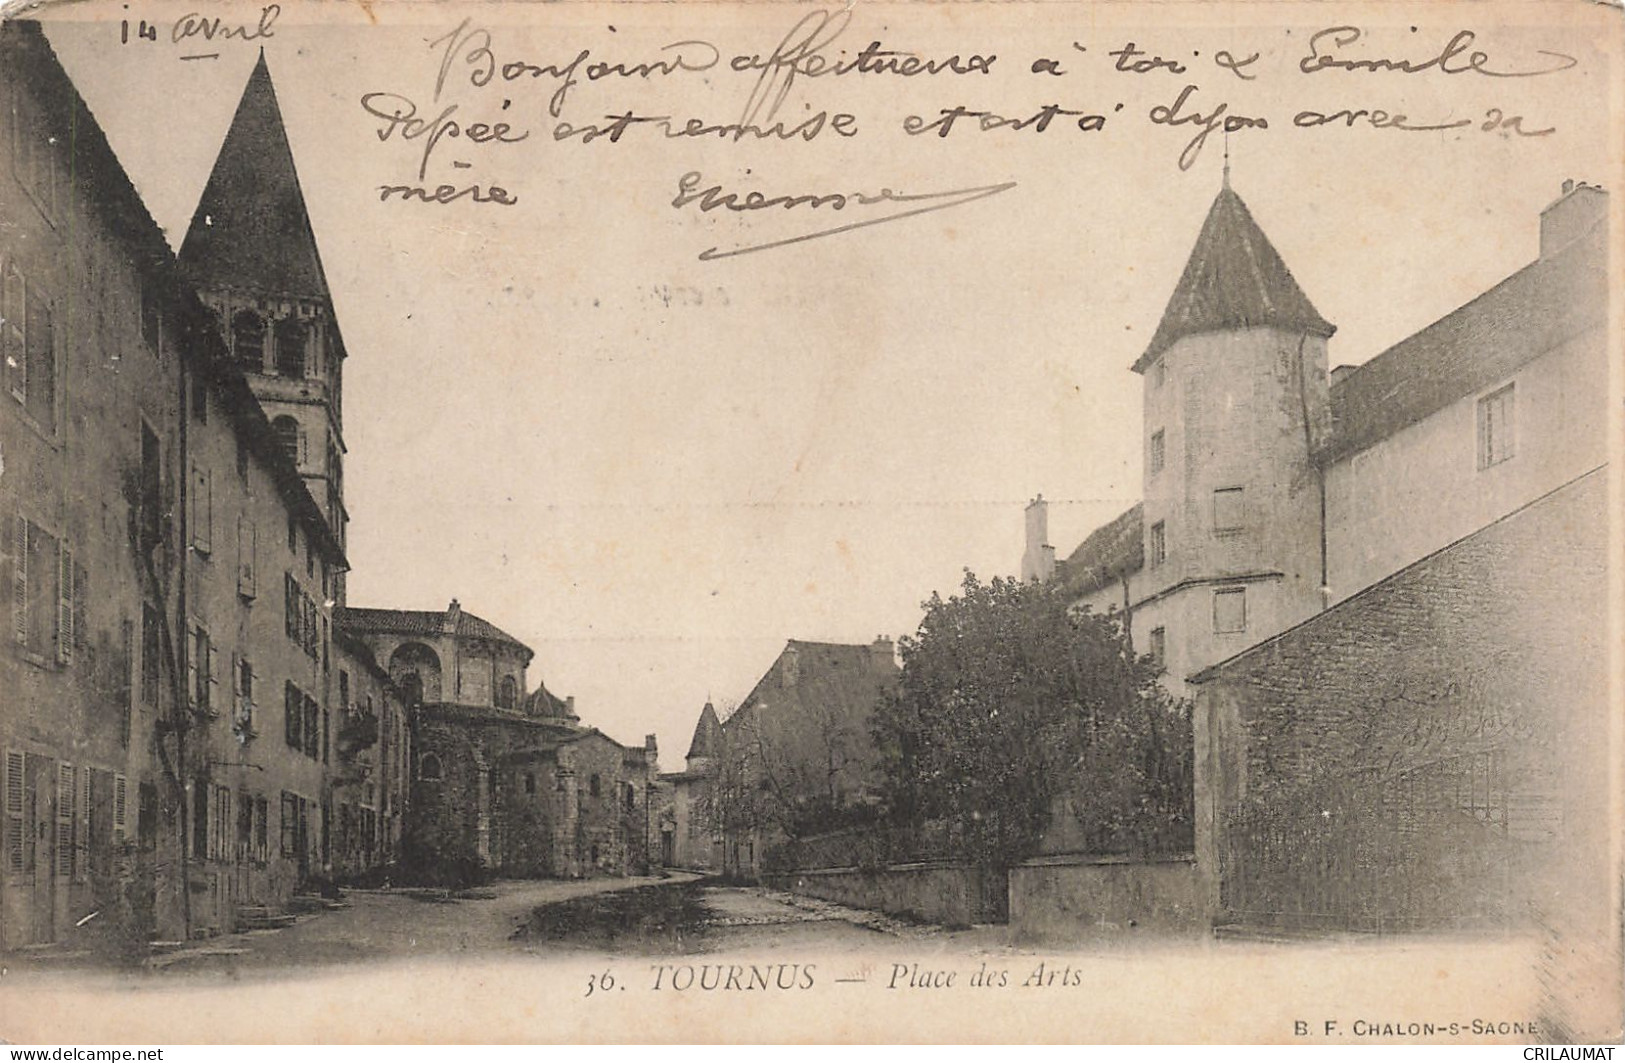 14 avril
Bonjour affectueux à toi & Emile
Pépée est remise et est à Lyon avec sa
mère Etienne
36. TOURNUS — Place des Arts
B. F. CHALON-S-SAONE
CRILAUMAT